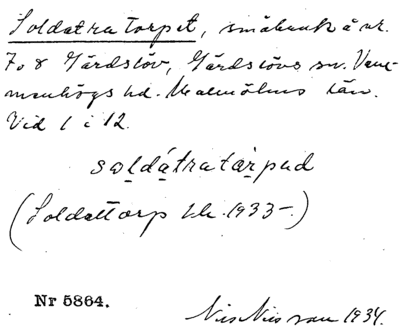 Soldatratorpet, småbruk å nr.
7 o 8 Gärdslöv, Gärdslövs sn. Vem-
menhögs hd. Malmöhus län.
Vid 1 i 12.
soldátratàrpad
(Soldattorp 1933–.)
Nr 5864.
Nils Nilsson 1934.